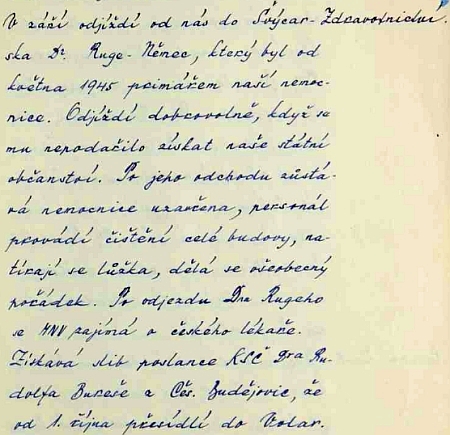 V září odjíždí od nás do Švýcar- Zdravotnictví.
ska Dr. Ruge - Němec, který byl od
května 1945 primářem naší nemoc-
nice. Odjíždí dobrovolně, když se
mu nepodařilo získat naše státní
občanství. Po jeho odchodu zůstá-
vá nemocnice uzavřena, personál
provádí čištění celé budovy, na-
tírají se lůžka, dělá se všeobecný
pořádek. Po odjezdu Dra Rugeho
se MNV zajímá o českého lékaře.
Získává slib poslance KSČ Dra Ru-
dolfa Bureše z Čes. Budějovic, že
od 1. října přesídlí do Volar.